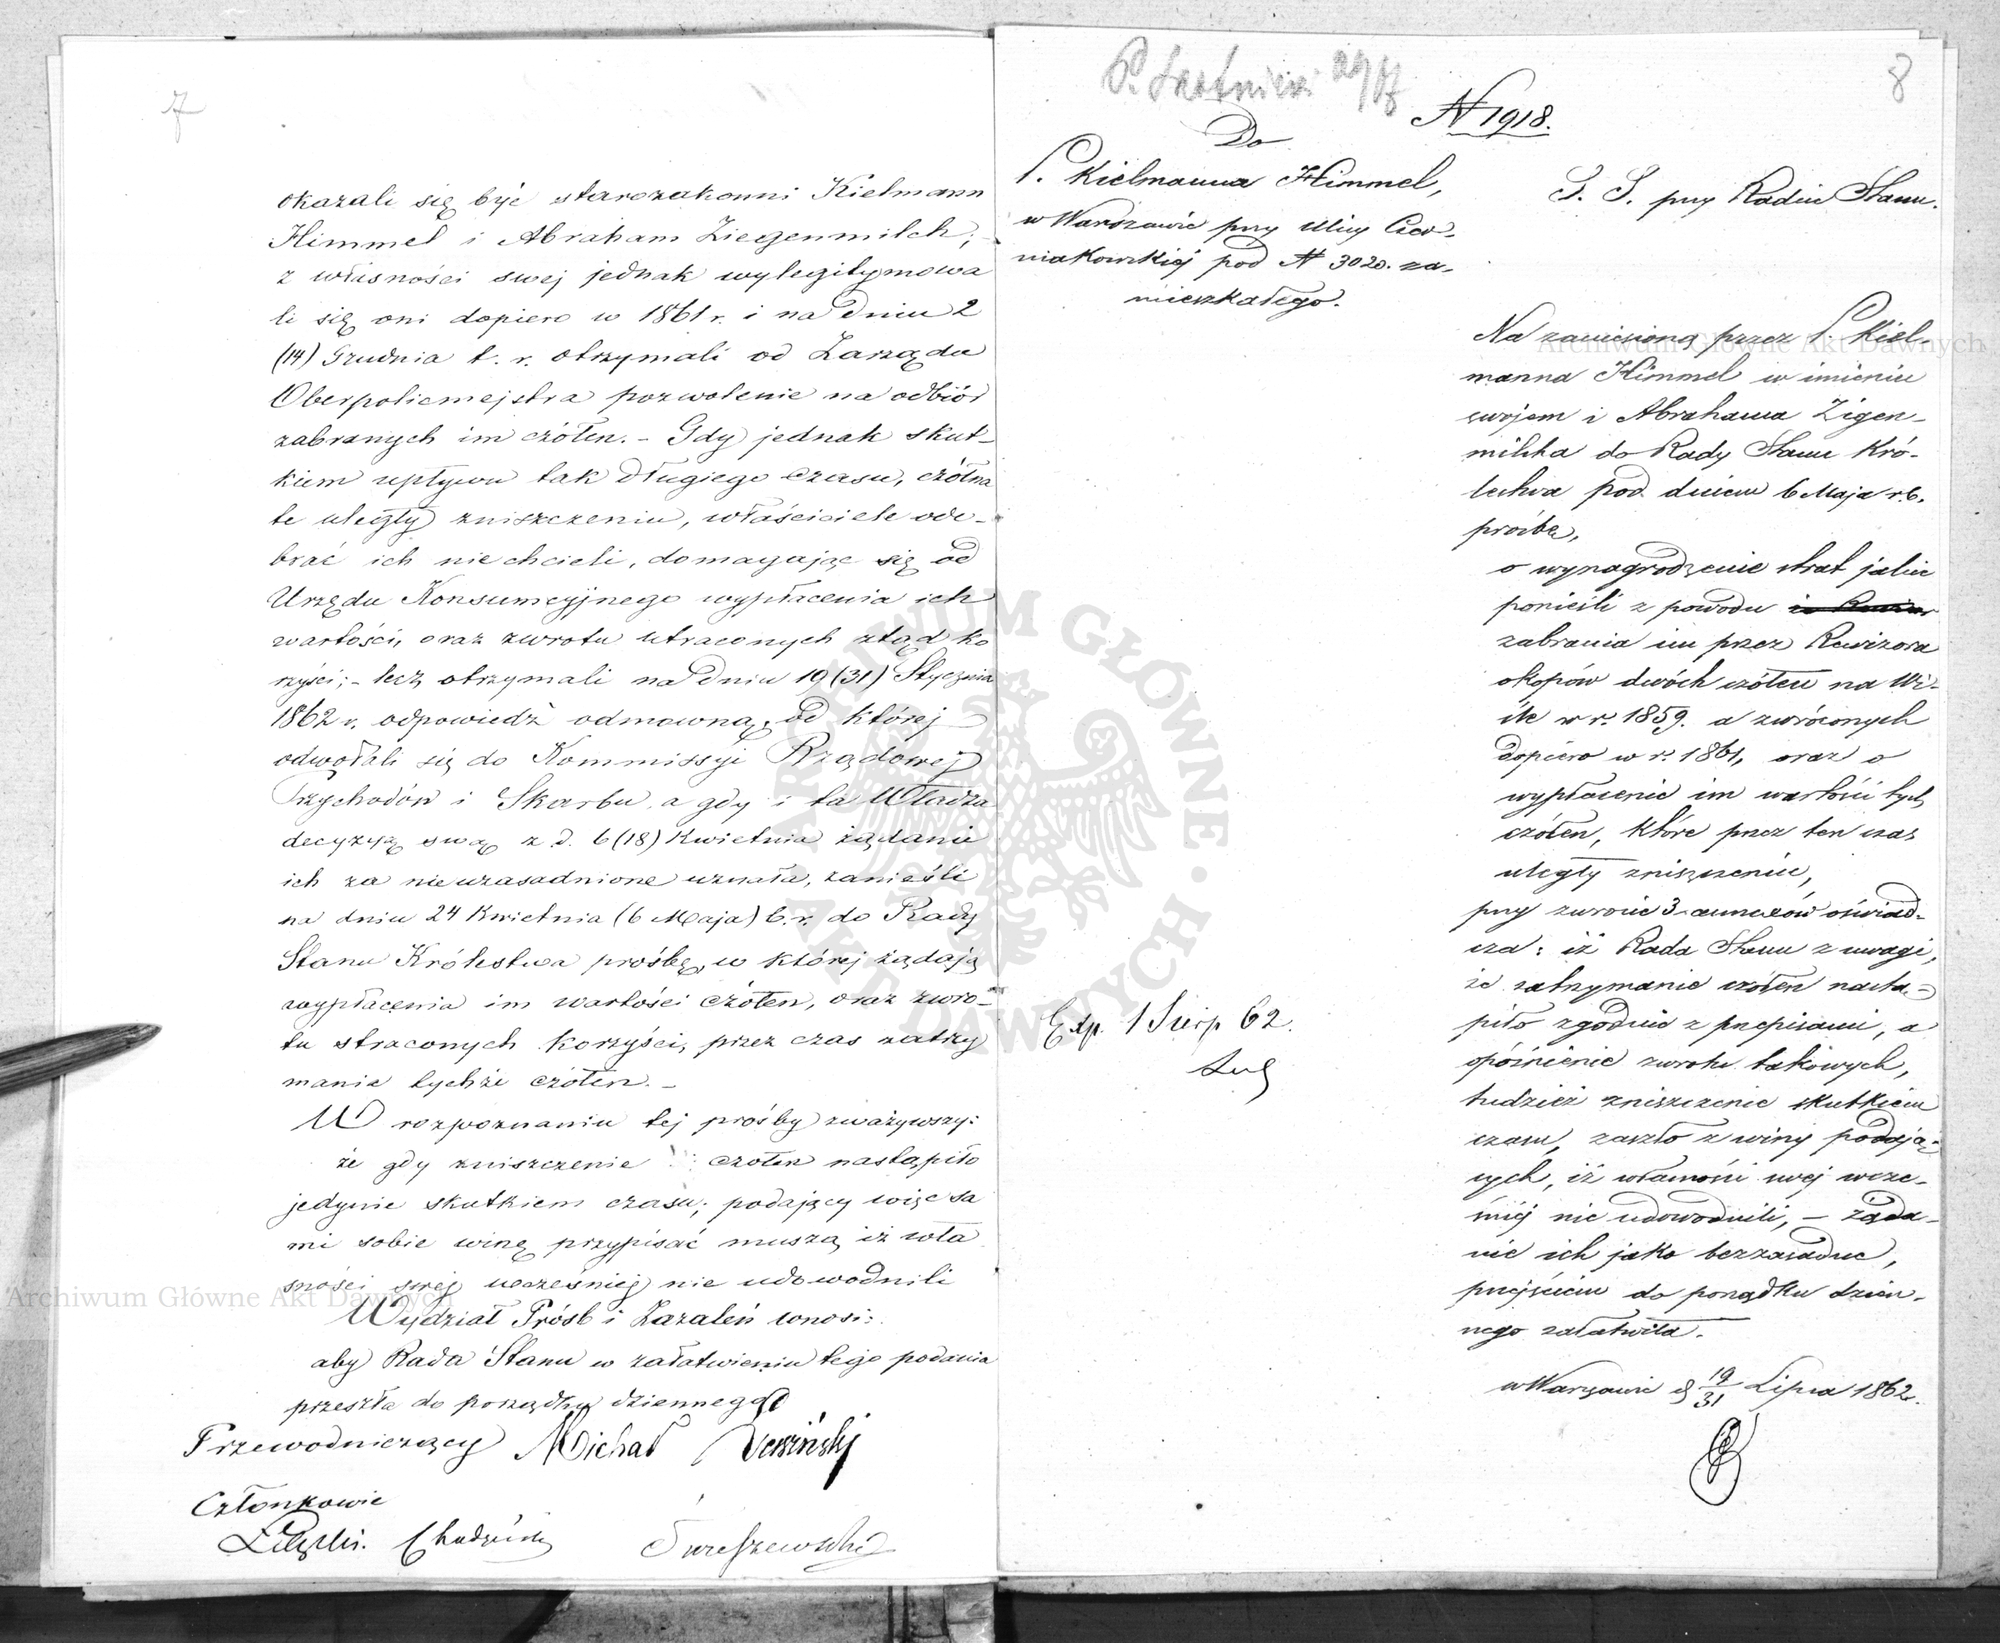 7
okazali się być starozakonni Kielmann
Himmel i Abraham Ziegenmilch;
z własności swej jednak wylegitymowa
li się oni dopiero w 1861 r. i na dniu 2
(14) Grudnia t. r. otrzymali od Zarządu
Oberpolicmejstra pozwolenie na odbiór
zabranych im czółen. – Gdy jednak skut-
kiem upływu tak długiego czasu, czółna
te uległy zniszczeniu, właściciele ode-
brać ich nie chcieli, domagając się od
Urzędu Konsumcyjnego wypłacenia ich
wartości, oraz zwrotu utraconych ztąd ko
rzyści; – lecz otrzymali na dniu 19 (31) Stycznia
1862 r. odpowiedź odmowną, od której
odwołali się do Kommissyi Rządowej
Przychodów i Skarbu, a gdy i ta Władza
decyzyą swą z d. 6 (18) Kwietnia żądanie
ich za nieuzasadnione uznała, zanieśli
na dniu 24 Kwietnia (6 Maja) b. r. do Rady
Stanu Królestwa prośbę, w której żądają
wypłacenia im wartości czółen, oraz zwro-
tu straconych korzyści, przez czas zatrzy
mania tychże czółen. –
W rozpoznaniu tej prośby zważywszy:
że gdy zniszczenie czółen nastąpiło
jedynie skutkiem czasu; podający więc sa
mi sobie winę przypisać muszą iż wła
sności swej wcześniej nie udowodnili
Wydział Próśb i Zażaleń wnosi:
aby Rada Stanu w załatwieniu tego podania
przeszła do porządku dziennego
Przewodniczący Michał
Członkowie
8
N 1918.
Do
P. Kielmanna Himmel,
w Warszawie przy Ulicy Czer-
niakowskiej pod N 3020. za-
mieszkałego.
S. S. przy Radzie Stanu.
Na zaniesioną przez P. Kiel-
manna Himmel w imieniu
swojem i Abrahama Zigen-
milcha do Rady Stanu Kró-
lestwa pod dniem 6 Maja r. b.
prośbę,
o wynagrodzenie strat jakie
ponieśli z powodu
zabrania im przez Rewizora
okopów dwóch czółen na Wi-
śle w r. 1859. a zwróconych
dopiero w r. 1861, oraz o
wypłacenie im wartości tych
czółen, które przez ten czas
uległy zniszczeniu,
przy zwrocie 3 annexów oświad-
cza: iż Rada Stanu z uwagi,
że zatrzymanie czółen nastą-
piło zgodnie z przepisami, a
opóźnienie zwrotu takowych,
tudzież zniszczenie skutkiem
czasu, zaszło z winy podają-
cych, iż własności swej wcze-
śniej nie udowodnili, – żąda-
nie ich jako bezzasadne,
przejściem do porządku dzien-
nego załatwiła.
w Warszawie d 19/31 Lipca 1862 r.
Exp. 1 Sierp 62.
Archiwum Główne Akt Dawnych
Archiwum Główne Akt Dawnych
ARCHIWUM GŁÓWNE AKT DAWNYCH